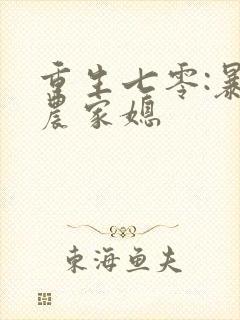 重生七零:暴
農家媳
東海鱼夫